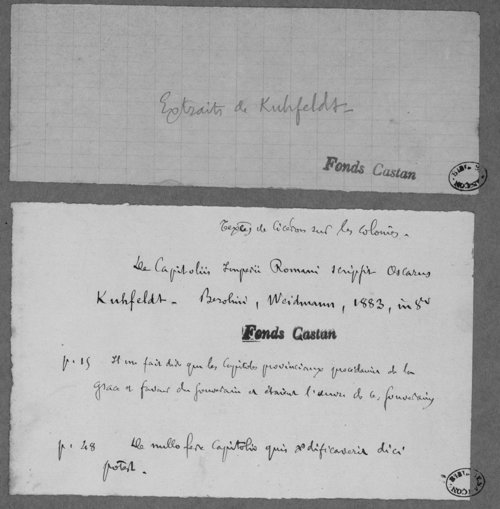 Extraits de Kuhfeldt
Fonds Castan
Textes de Cicéron sur les colonies.
De Capitoliis Imperii Romani scripsit Oscarus
Kuhfeldt. Berolini, Weidmann, 1883, in 8º
Fonds Castan
p. 15 Il en fait dire que les Capitoles provinciaux procédaient de la
grâce et faveur du souverain et étaient l'œuvre de ce souverain
p. 48 De nullo fere Capitolio quis ædificaverit dici
potest.